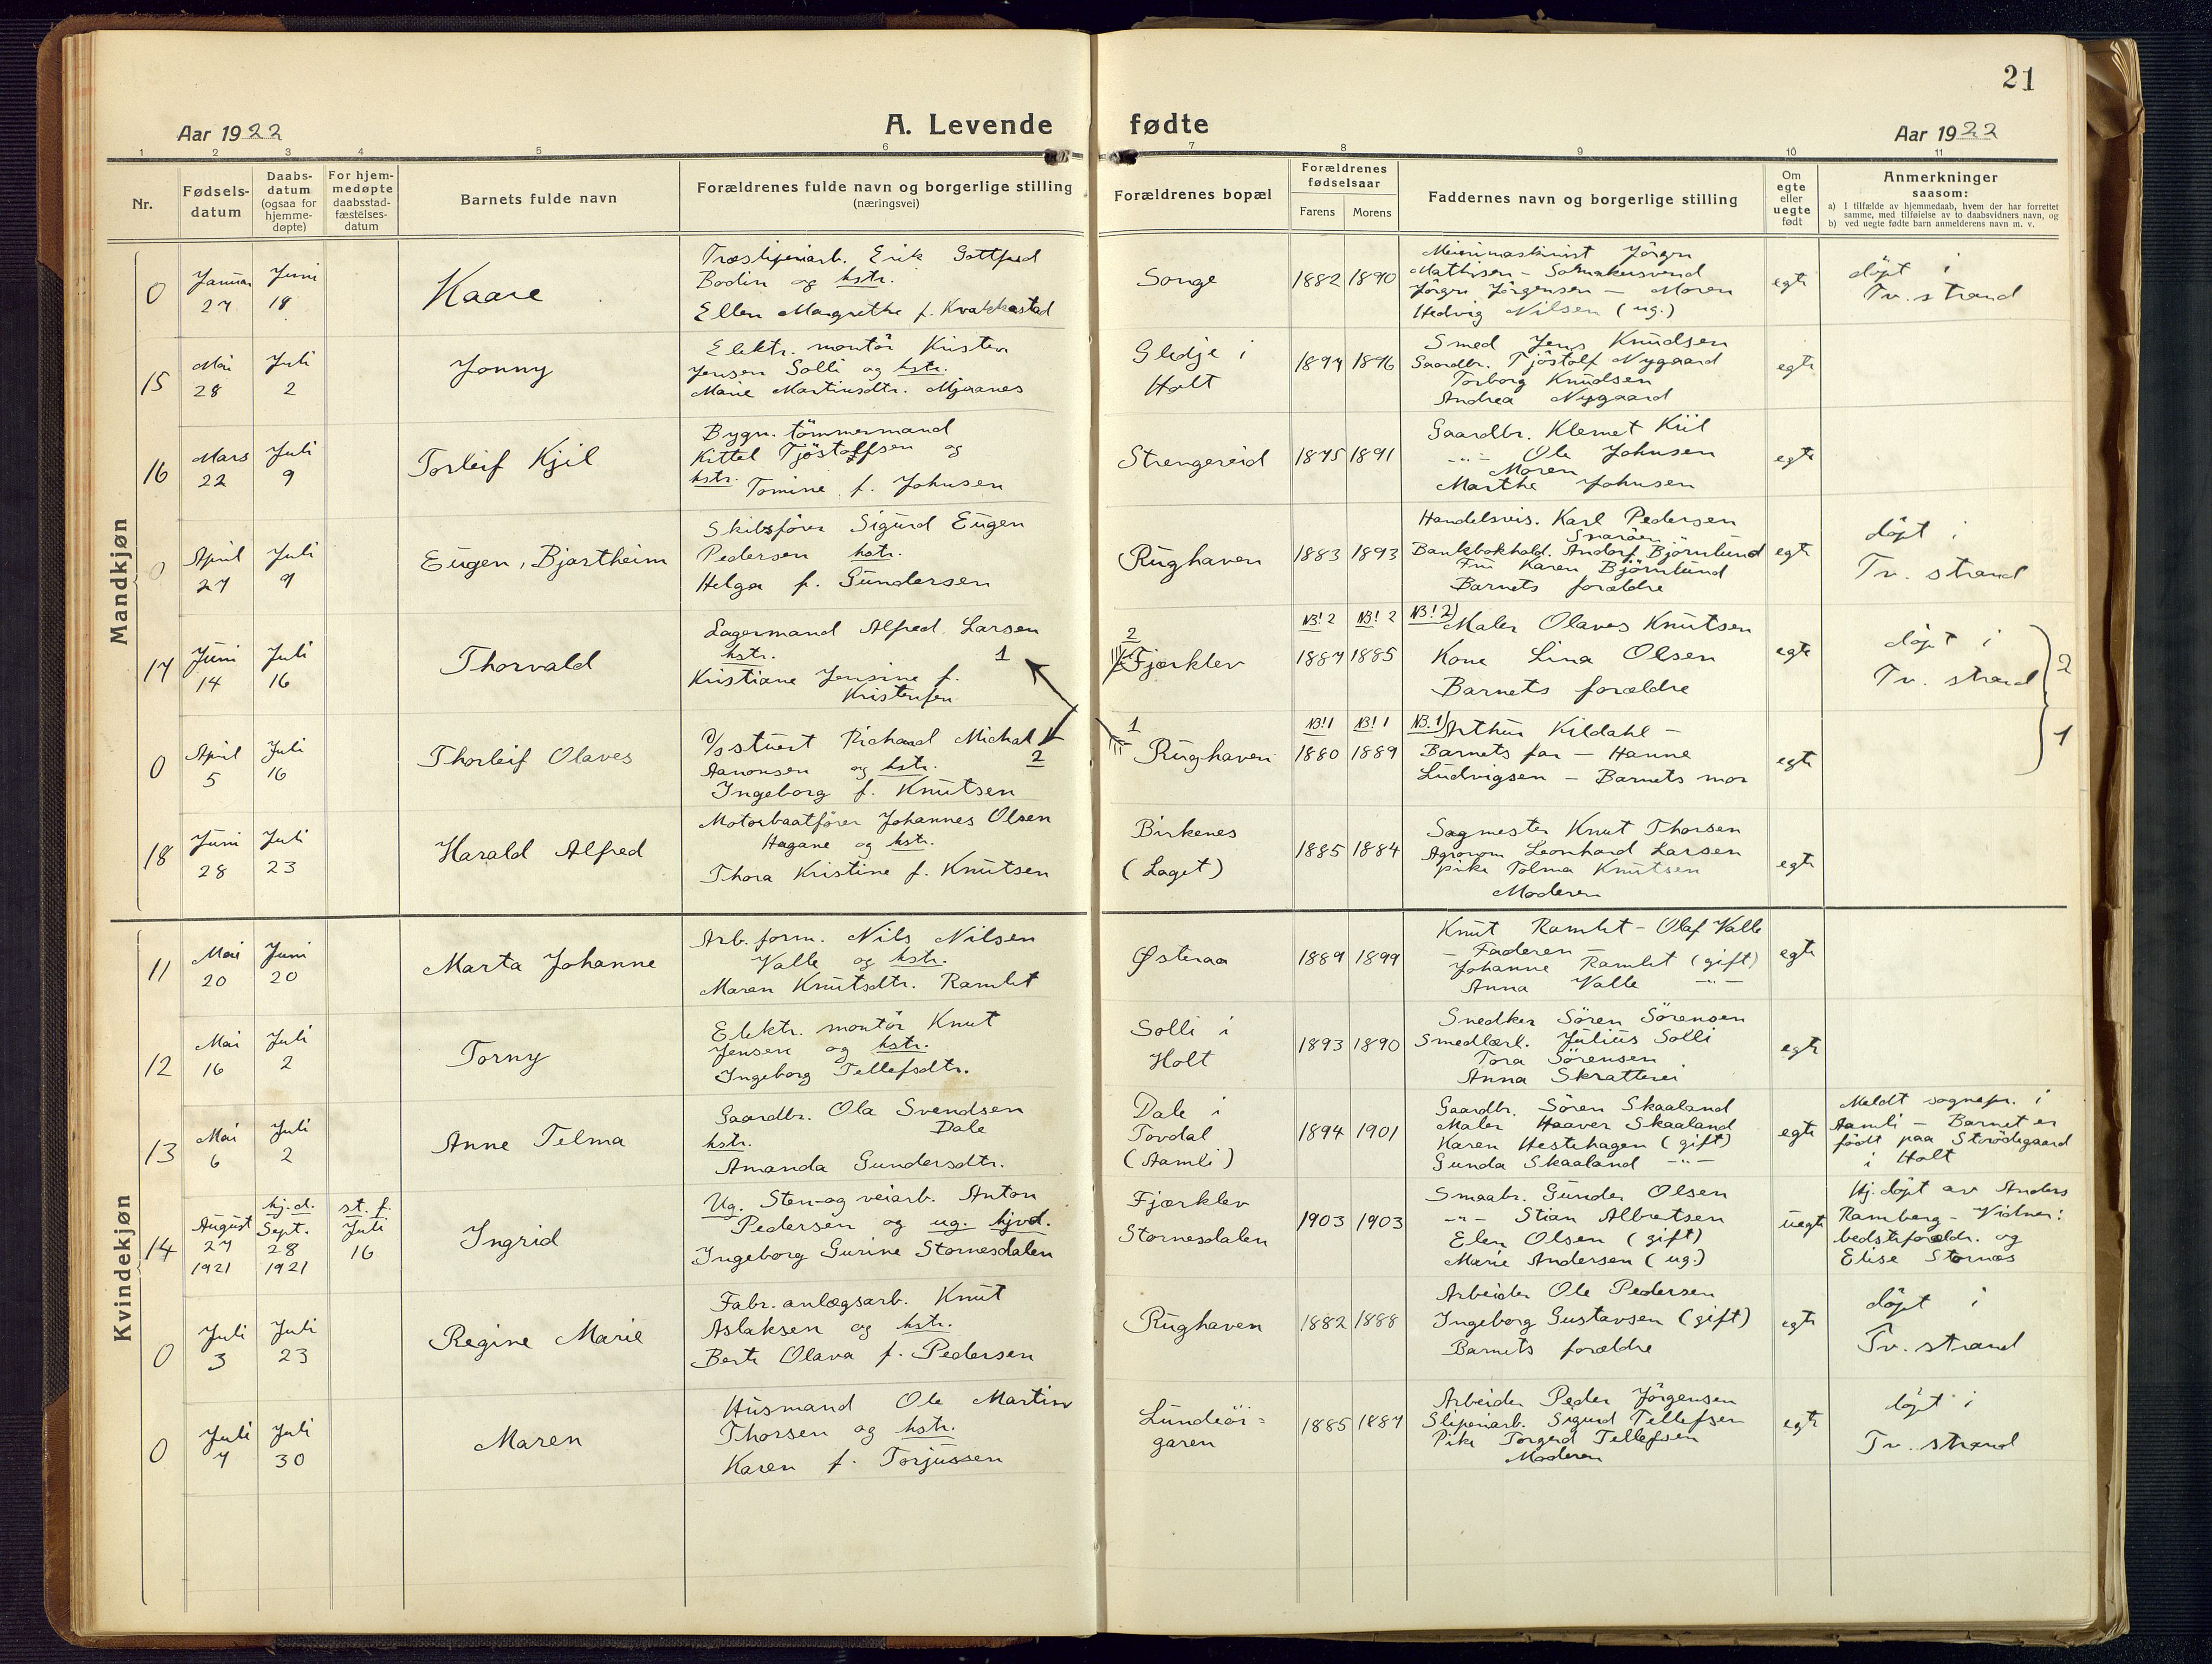 21
Aar 1922
A. Levende fødte
Aar 1922
1 2 3 4 5 6 7 8 9 10 11
Nr.
Fødsels-
datum
Daabs-
datum
(ogsaa for
hjemme-
døpte)
For hjem-
medøpte
daabsstad-
fæstelses-
datum
Barnets fulde navn
Forældrenes fulde navn og borgerlige stilling
(næringsvei)
Forældrenes bopæl
Forældrenes
fødselsaar
Farens
Morens
Faddernes navn og borgerlige stilling
Om
egte
eller
uegte
født
Anmerkninger
saasom:
a) I tilfælde av hjemmedaab, hvem der har forrettet
samme, med tilføielse av to daabsvidners navn, og
b) ved uegte fødte barn anmelderens navn m. v.
Mandkjøn
0
Januar
27
Juni
18
Kaare
Træsliperiarb. Erik Gottfred
Bodin og hstr.
Ellen Margrethe f. Kvakkestad
Songe
1882 1890
Meierimaskinist Jörgen
Mathisen - Salmakersvend
Jörgen Jörgensen - Moren
Hedvig Nilsen (ug.)
egte
döpt i
Tv. strand
15
Mai
28
Juli
2
Jonny
Elektr. montör Kristen
Jensen Solli og hstr.
Marie Martinsdtr. Mjaanes
Gledje i
Holt
1894 1896
Smed Jens Knudsen
Gaardbr. Tjöstolf Nygaard
Torborg Knudsen
Andrea Nygaard
egte
16
Mars
22
Juli
9
Torleif Kjil
Bygn. tömmermand
Kittel Tjöstolfsen og
hstr. Tomine f. Johnsen
Strengereid
1875 1891
Gaardbr. Klemet Kiil
-"- Ole Johnsen
Moren
Marthe Johnsen
egte
0
April
27
Juli
9
Eugen, Bjartheim
Skibsförer Sigurd Eugen
Pedersen hstr.
Helga f. Gundersen
Rughaven
1883 1893
Handelsreis. Karl Pedersen
Snaröen
Bankbokhold. Andorf Björnlund
Fru Karen Björnlund
Barnets forældre
egte
döpt i
Tv. strand
17
Juni
14
Juli
16
Thorvald
Lagermand Alfred Larsen
hstr. 1
Kristiane Jensine f.
Kristensen
2
Fjærklev
NB! 2 NB! 2
1887 1885
NB! 2) Maler Olaves Knutsen
Kone Lina Olsen
Barnets forældre
egte
döpt i
Tv. strand
2
0
April
5
Juli
16
Thorleif Olaves
D/s stuert Richard Michal
Aanonsen og hstr. 2
Ingeborg f. Knutsen
1
Rughaven
NB! 1 NB! 1
1880 1889
NB. 1) Arthur Kildahl -
Barnets far - Hanne
Ludvigsen - Barnets mor
egte
1
18
Juni
28
Juli
23
Harald Alfred
Motorbaatförer Johannes Olsen
Hagane og hstr.
Thora Kristine f. Knutsen
Birkenes
(Laget)
1885 1884
Sagmester Knut Thorsen
Agronom Leonhard Larsen
pike Tolma Knutsen
Moderen
egte
Kvindekjøn
11
Mai
20
Juni
20
Marta Johanne
Arb. form. Nils Nilsen
Valle og hstr.
Maren Knutsdtr. Ramlet
Østeraa
1889 1899
Knut Ramlet - Olaf Valle
- Faderen -
Johanne Ramlet (gift)
Anna Valle -"-
egte
12
Mai
16
Juli
2
Torny
Elektr. montör Knut
Jensen og hstr.
Ingeborg Tellefsdtr.
Solli i
Holt
1893 1890
Snedker Sören Sörensen
Smedlærl. Julius Solli
Tora Sörensen
Anna Skratterei
egte
13
Mai
6
Juli
2
Anne Telma
Gaardbr. Ola Svendsen
Dale
hstr.
Amanda Gundersdtr.
Dale i
Tovdal
(Aamli)
1894 1901
Gaardbr. Sören Skaaland
Maler Haaver Skaaland
Karen Hestehagen (gift)
Gunda Skaaland -"-
egte
Meldt sognepr. i
Aamli - Barnet er
födt paa Strödegaard
i Holt
14
August
27
1921
hj.d.
Sept.
28
1921
st. f.
Juli
16
Ingrid
Ug. Sten- og veiarb. Anton
Pedersen og ug. hjvd.
Ingeborg Gurine Stornesdalen
Fjærklev
Stornesdalen
1903 1903
Smaabr. Gunder Olsen
-"- Stian Albretsen
Elen Olsen (gift)
Marie Andersen (ug.)
uegte
Hj. döpt av Anders
Ramberg - Vidner:
bedsteforældr. og
Elise Stornæs
0
Juli
3
Juli
23
Regine Marie
Fabr. anlægsarb. Knut
Aslaksen og hstr.
Berte Olava f. Pedersen
Rughaven
1882 1888
Arbeider Ole Pedersen
Ingeborg Gustavsen (gift)
Barnets forældre
egte
döpt i
Tv. strand
0
Juli
7
Juli
30
Maren
Husmand Ole Martin
Thorsen og hstr.
Karen f. Torjussen
Lundeör=
garen
1885 1887
Arbeider Peder Jörgensen
Sliperiarb. Sigurd Tellefsen
Pike Torgerd Tellefsen
Moderen
egte
döpt i
Tv. strand